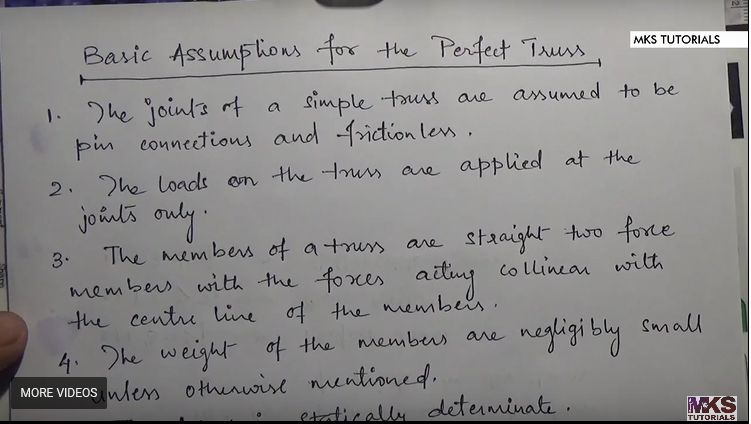 Basic Assumptions for the Perfect Truss
MKS TUTORIALS
1. The joints of a simple truss are assumed to be
pin connections and frictionless.
2. The loads on the truss are applied at the
joints only.
3. The members of a truss are straight two force
members with the forces acting collinear with
the centre line of the members.
4. The weight of the members are negligibly small
unless otherwise mentioned.
MORE VIDEOS
statically determinate.
MKS
TUTORIALS